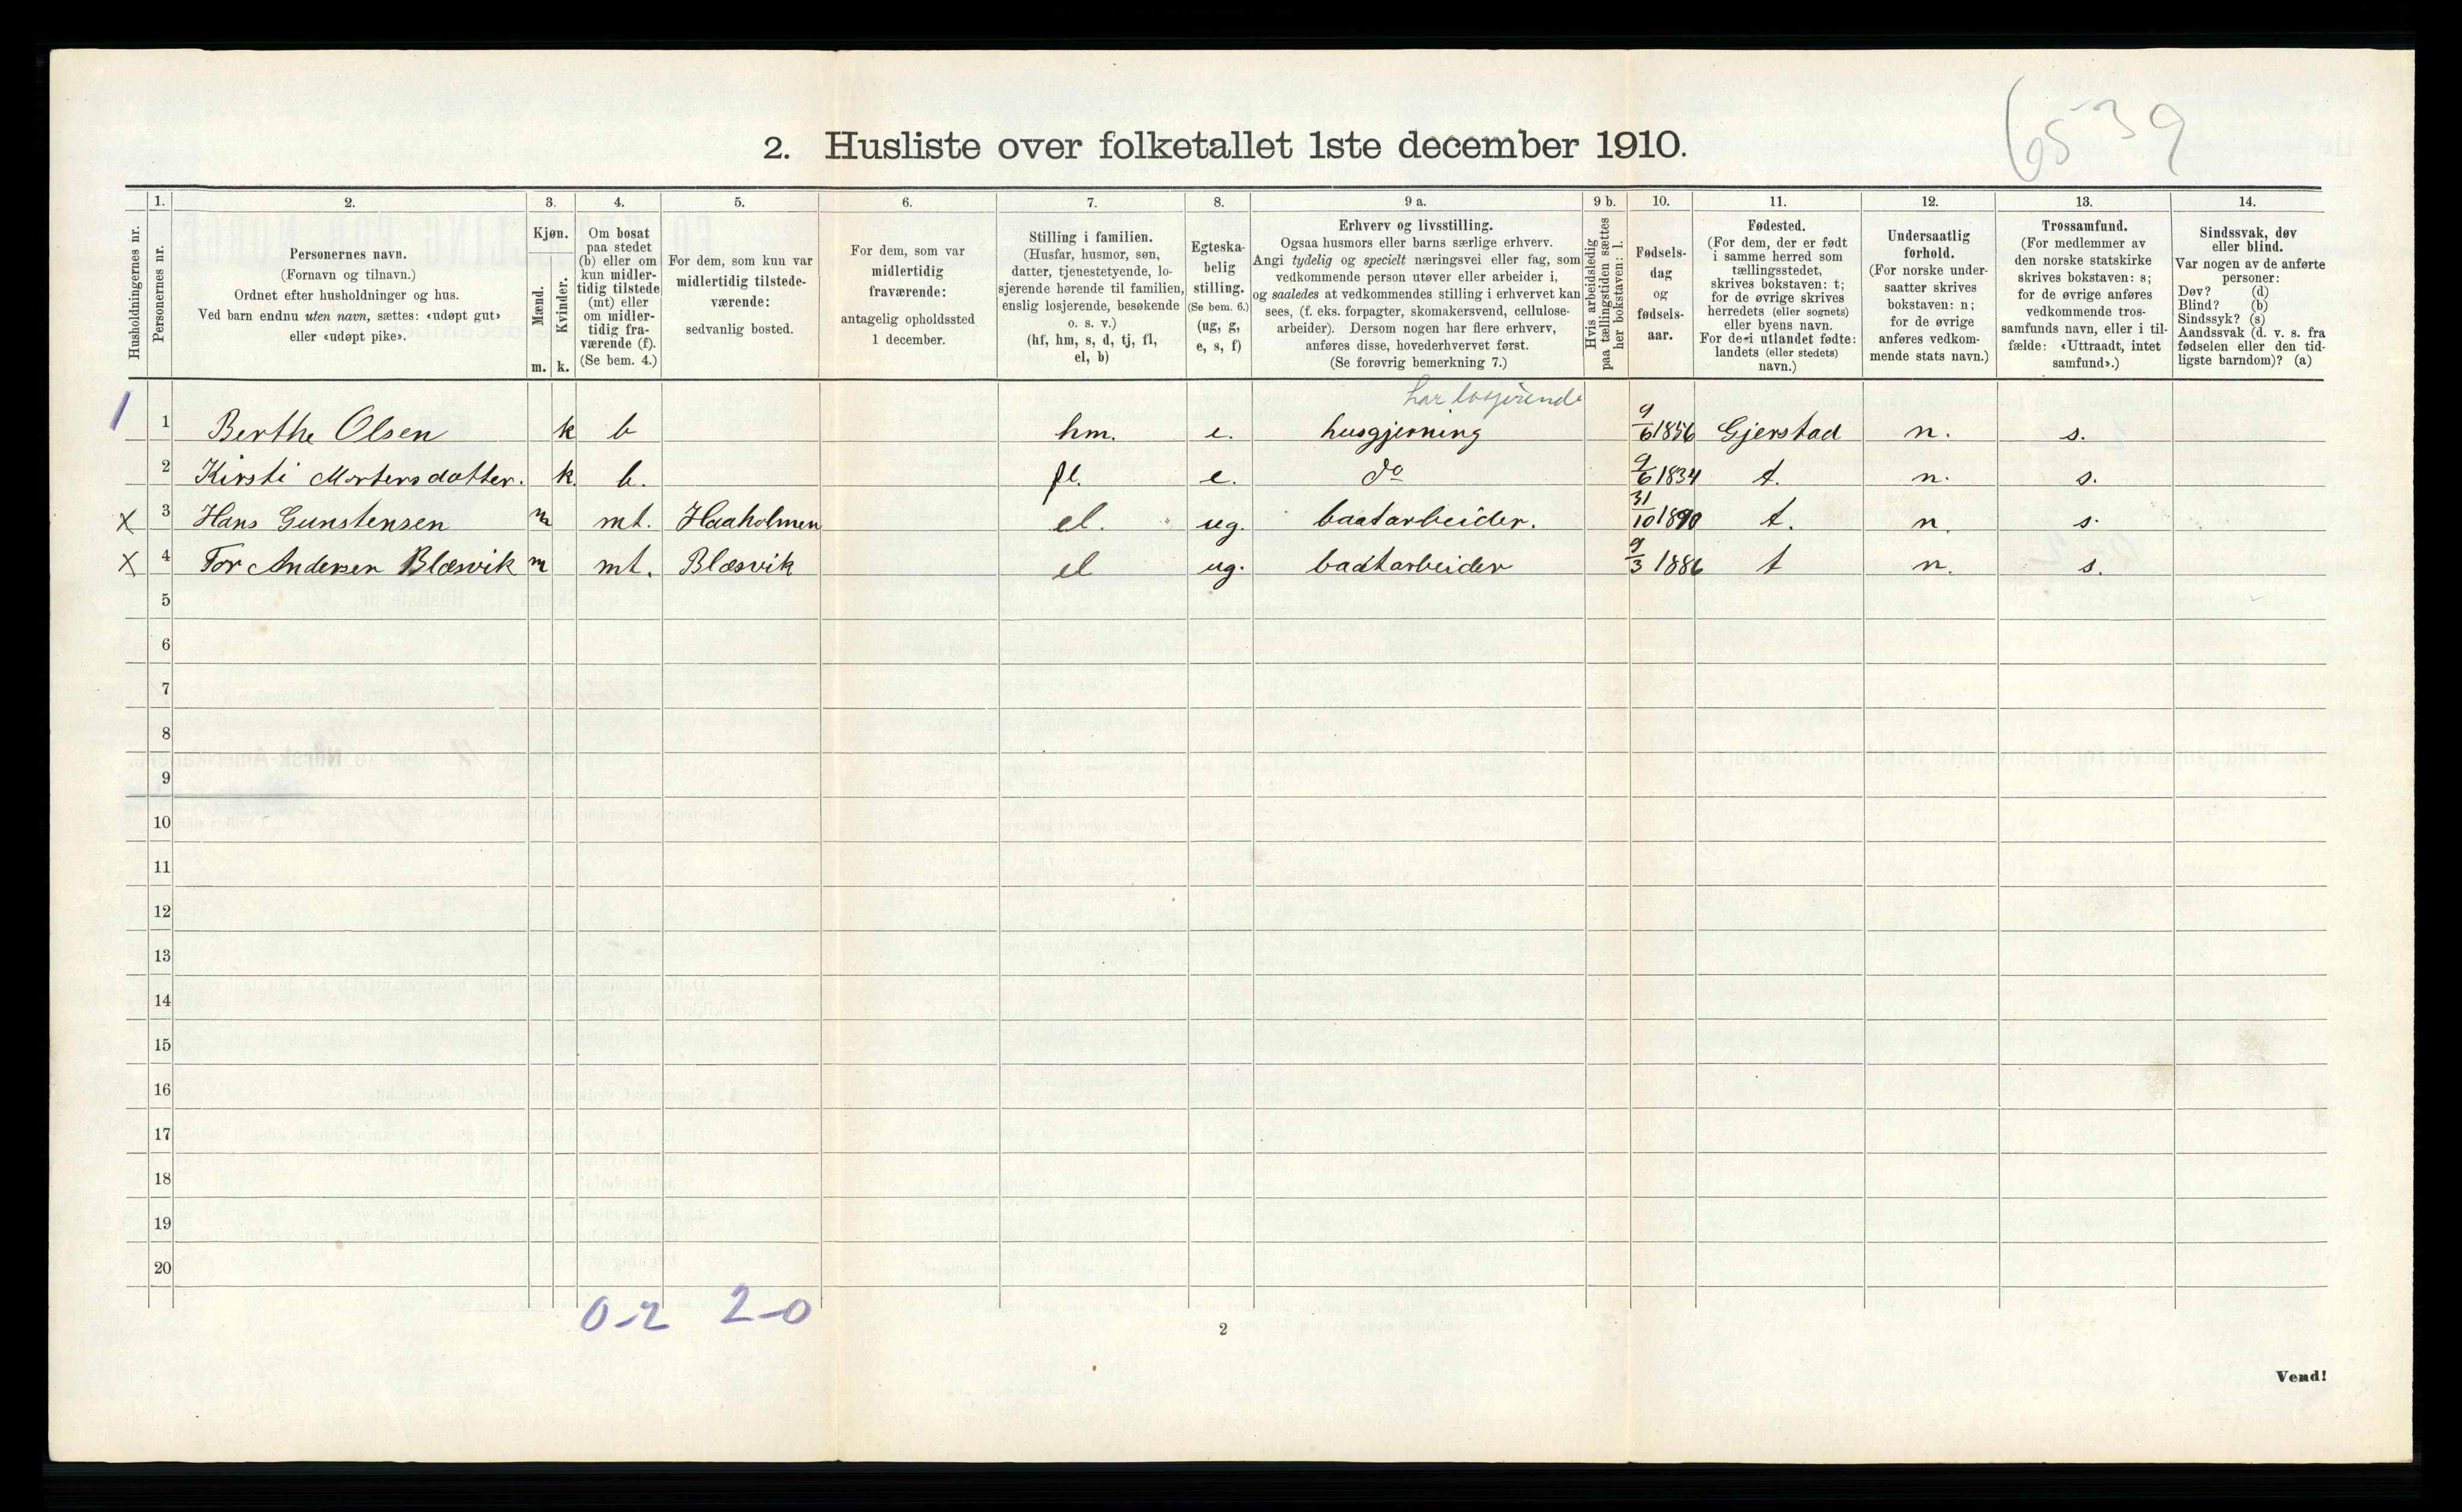 6539
2. Husliste over folketallet 1ste december 1910.
Husholdningernes nr.
1.
Personernes nr.
2.
Personernes navn.
(Fornavn og tilnavn.)
Ordnet efter husholdninger og hus.
Ved barn endnu uten navn, sættes: «udøpt gut»
eller «udøpt pike».
3.
Kjøn.
Mænd.
Kvinder.
m. k.
4.
Om bosat
paa stedet
(b) eller om
kun midler-
tidig tilstede
(mt) eller
om midler-
tidig fra-
værende (f).
(Se bem. 4.)
5.
For dem, som kun var
midlertidig tilstede-
værende:
sedvanlig bosted.
6.
For dem, som var
midlertidig
fraværende:
antagelig opholdssted
1 december.
7.
Stilling i familien.
(Husfar, husmor, søn,
datter, tjenestetyende, lo-
sjerende hørende til familien,
enslig losjerende, besøkende
o. s. v.)
(hf, hm, s, d, tj, fl,
el, b)
8.
Egteska-
belig
stilling.
(Se bem. 6.)
(ug, g,
e, s, f)
9 a.
Erhverv og livsstilling.
Ogsaa husmors eller barns særlige erhverv.
Angi tydelig og specielt næringsvei eller fag, som
vedkommende person utøver eller arbeider i,
og saaledes at vedkommendes stilling i erhvervet kan
sees, (f. eks. forpagter, skomakersvend, cellulose-
arbeider). Dersom nogen har flere erhverv,
anføres disse, hovederhvervet først.
(Se forøvrig bemerkning 7.)
9 b.
Hvis arbeidsledig
paa tællingstiden sættes
her bokstaven: l.
10.
Fødsels-
dag
og
fødsels-
aar.
11.
Fødested.
(For dem, der er født
i samme herred som
tællingsstedet,
skrives bokstaven: t;
for de øvrige skrives
herredets (eller sognets)
eller byens navn.
For de i utlandet fødte:
landets (eller stedets)
navn.)
12.
Undersaatlig
forhold.
(For norske under-
saatter skrives
bokstaven: n;
for de øvrige
anføres vedkom-
mende stats navn.)
13.
Trossamfund.
(For medlemmer av
den norske statskirke
skrives bokstaven: s;
for de øvrige anføres
vedkommende tros-
samfunds navn, eller i til-
fælde: «Uttraadt, intet
samfund».)
14.
Sindssvak, døv
eller blind.
Var nogen av de anførte
personer:
Døv? (d)
Blind? (b)
Sindssyk? (s)
Aandssvak (d. v. s. fra
fødselen eller den tid-
ligste barndom)? (a)
har losjerende
1 1 Berthe Olsen k b hm. e. husgjerning 9/6 1856 Gjerstad n. s.
2 Kirsti Mortensdatter. k. b. fl. e. do 9/6 1834 t. n. s.
x 3 Hans Gunstensen m mt. Haaholmen el. ug. baatarbeider. 31/10 1890 t. n. s.
x 4 Tor Andersen Blæsvik m mt. Blæsvik el ug. baatarbeider 9/3 1886 t n. s.
5
6
7
8
9
10
11
12
13
14
15
16
17
18
19
20
0-2 2-0
2
Vend!